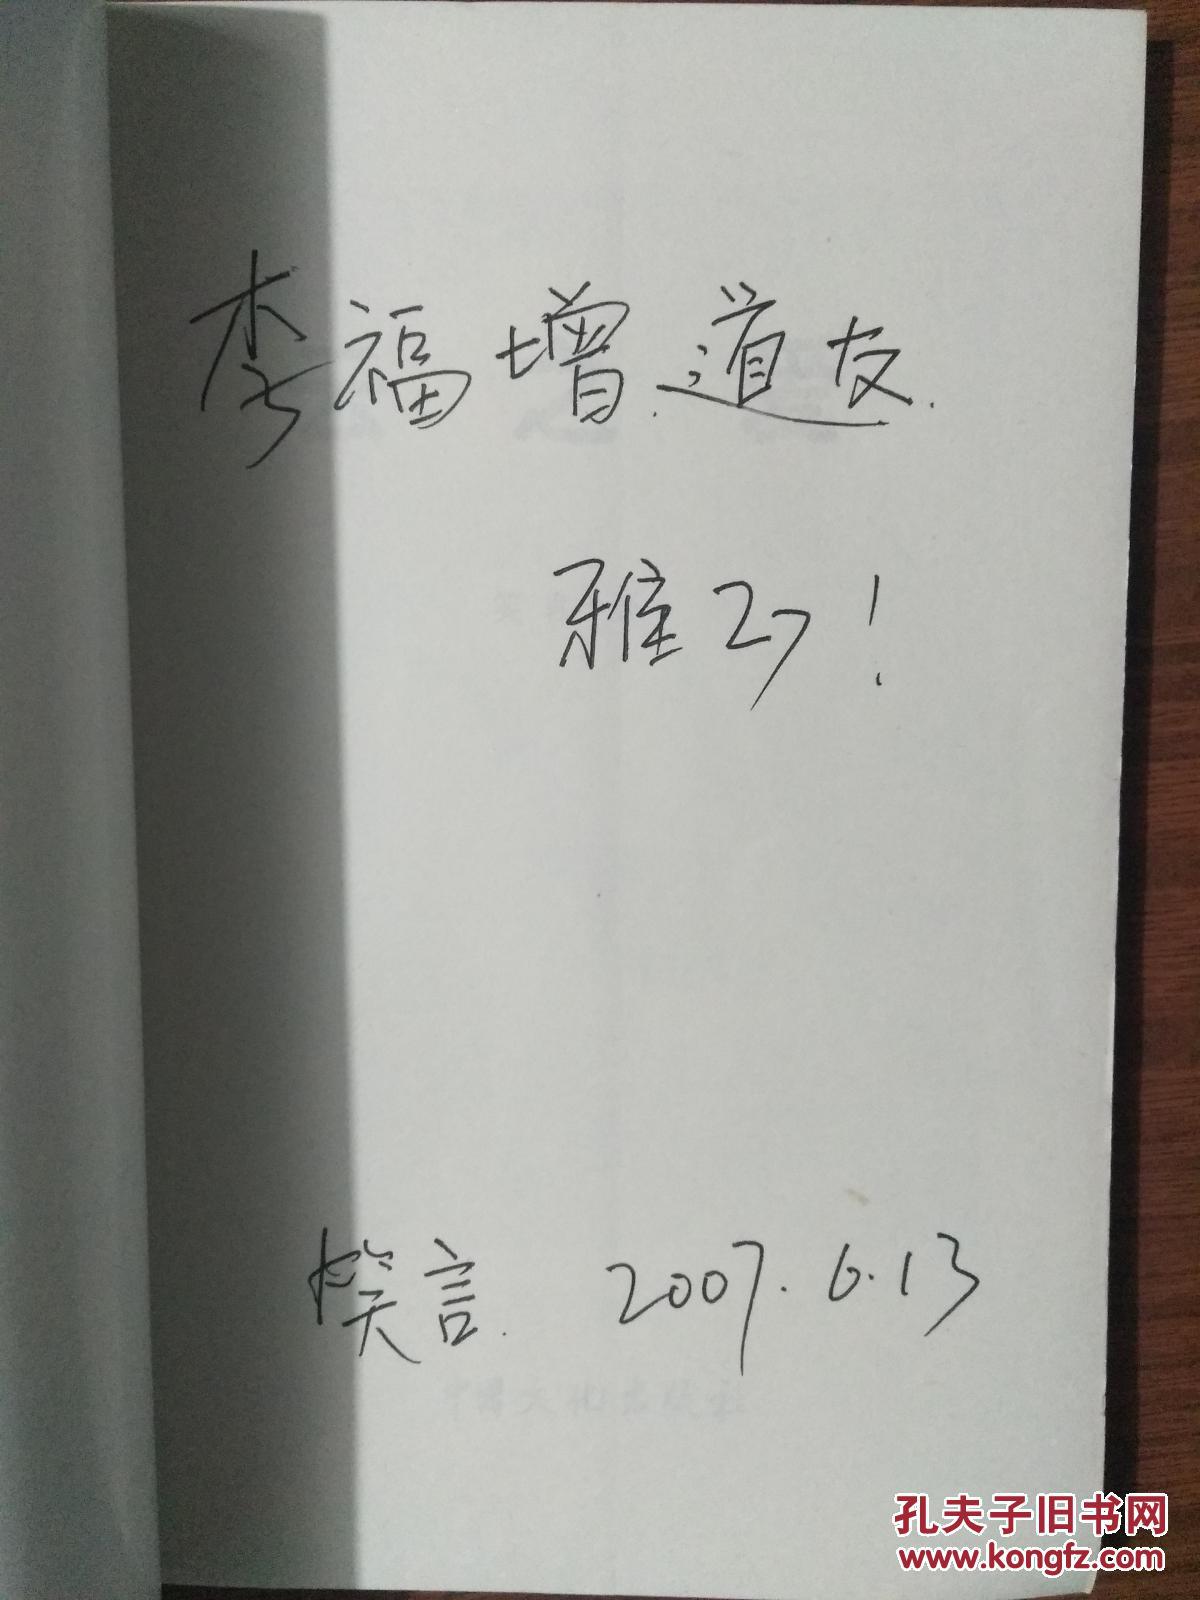 李福增道友.
雅正!
笑言. 2007.6.13
中国文化出版社
孔夫子旧书网
www.kongfz.com